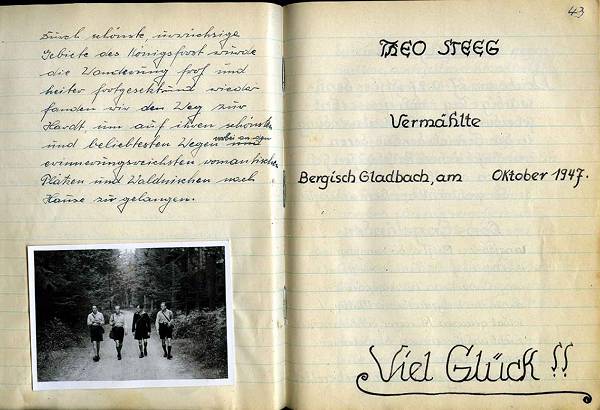 Durch schönste, urwüchsige
Gebiete des Königsforst wurde
die Wanderung froh und
heiter fortgesetzt und wieder
fanden wir den Weg zur
Hardt um auf ihren schönsten
und beliebtesten Wegen
wobei an den
erinnerungsreichsten romantischen
Plätzen und Waldnischen nach
Hause zu gelangen.
43
THEO STEEG
Vermählte
Bergisch Gladbach, am Oktober 1947.
Viel Glück !!